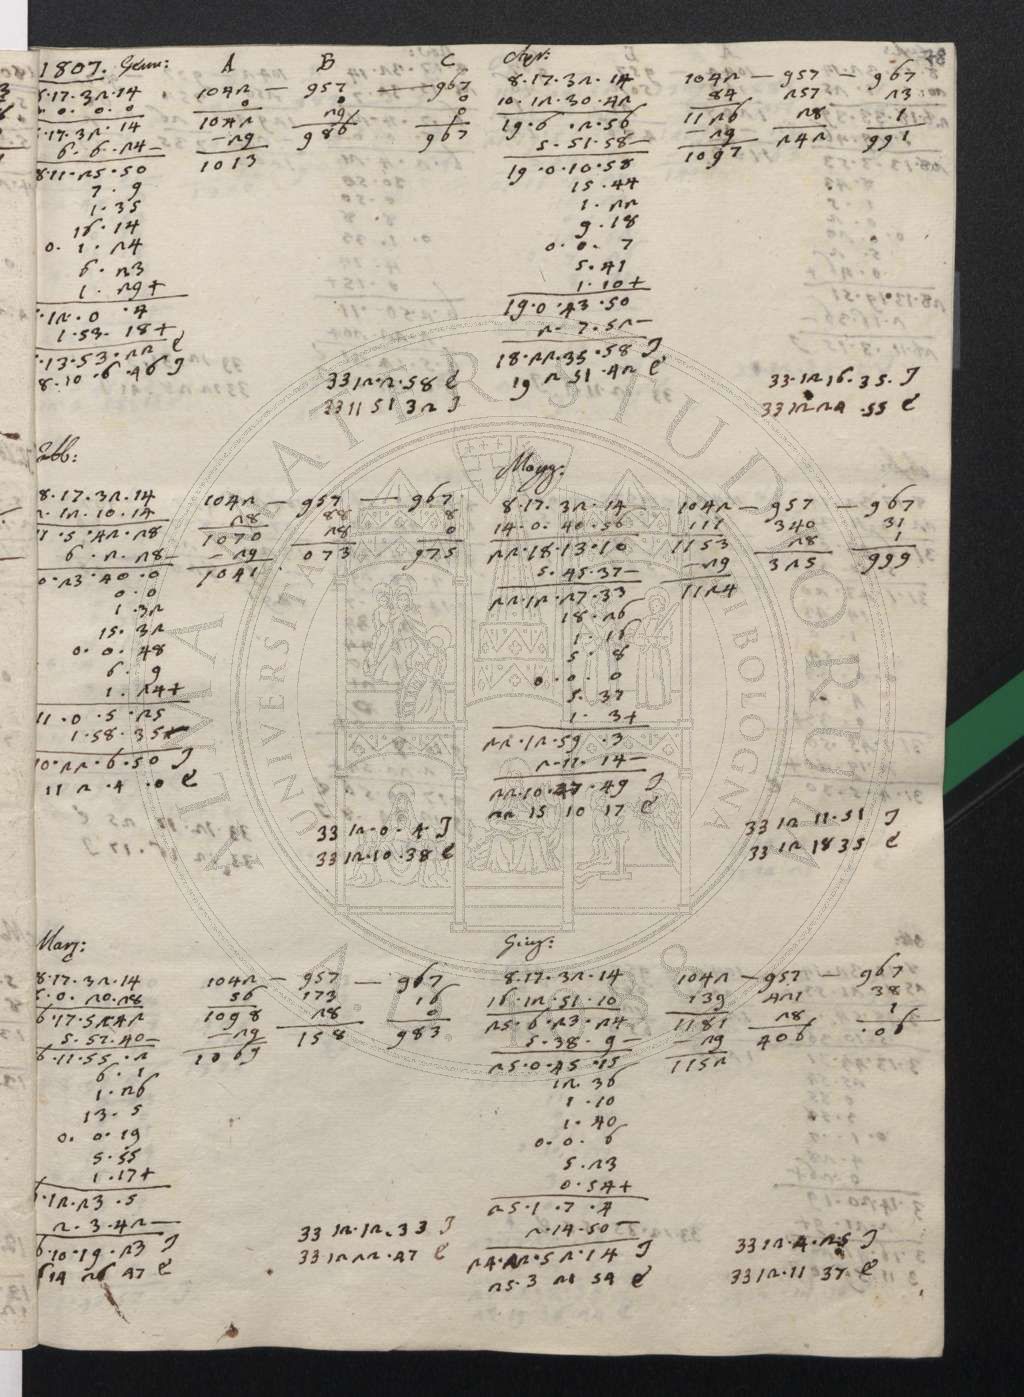 1807. Genn: A B C
8.17.32.14 1042 — 957 — 967
0.0.0.0 0 0 0
8.17.32.14 1042 29 0
6.6.24— —29 986 967
8.11.25.50 1013
7.9
1.35
16.14
0.1.24
6.23
1.29+
.12.0.4
1.53.18+
.13.53.22 E
8.10.6.46 I
33 12.2.58 E
33 11 51 32 I
Apr:
8.17.32.14 1042 — 957 — 967
10.12.30.42 84 257 23
19.6.2.56 1126 28 1
5.51.58— —29 242 991
19.0.10.58 1097
15.44
1.22
9.18
0.0.7
5.41
1.10+
19.0.43.50
2.7.52—
18.22.35.58 I
19 2 51.42 E
33.12 16.35. I
33 12 24.55 E
Febb:
8.17.32.14 1042 — 957 — 967
2.12.10.14 28 88 8
11.5.42.28 1070 28 0
6.2.28— —29 073 975
0.23.40.0 1041
0.0
1.32
15.32
0.0.48
6.9
1.24+
11.0.5.25
1.58.35—
10.22.6.50 I
11 2.4.0 E
33 12.0.4. I
33 12.10.38 E
Magg:
8.17.32.14 1042 — 957 — 967
14.0.40.56 111 340 31
22.18.13.10 1153 28 1
5.45.37— —29 325 999
22.12.27.33 1124
18.26
1.16
5.8
0.0.0
5.37
1.3+
22.12.59.3
2.11.14—
22.10.47.49 I
22 15 10 17 E
33 12 11.51 I
33 12 18 35 E
Marz:
8.17.32.14 1042 — 957 — 967
8.0.20.28 56 173 16
6.17.52.42 1098 28 0
5.57.40— —29 158 983
6.11.55.2 1069
6.1
1.26
13.5
0.0.19
5.55
1.17+
6.12.23.5
2.3.42—
6.10.19.23 I
6 14 26 47 E
33 12.12.33 I
33 12 22.47 E
Giug:
8.17.32.14 1042 — 957 — 967
16.12.51.10 139 421 38
25.6.23.24 1181 28 1
5.38.9— —29 406 .06
25.0.45.15 1152
12.36
1.10
1.40
0.0.6
5.23
0.54+
25.1.7.4
2.14.50—
24.22.52.14 I
25.3 21 54 E
33 12.4.25 I
33 12.11 37 E